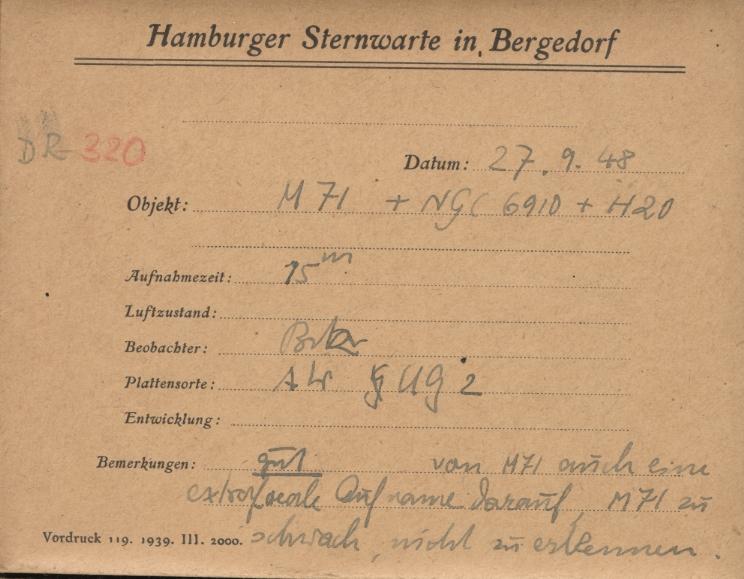 Hamburger Sternwarte in Bergedorf
DR 320
Datum: 27.9.48
Objekt: M 71 + NGC 6910 + H20
Aufnahmezeit: 15 m
Luftzustand:
Beobachter:
Plattensorte: UG 2
Entwicklung:
Bemerkungen: gut von M71 auch eine
extrafocale Aufname darauf, M71 zu
schwach, nicht zu erkennen.
Vordruck 119. 1939. III. 2000.